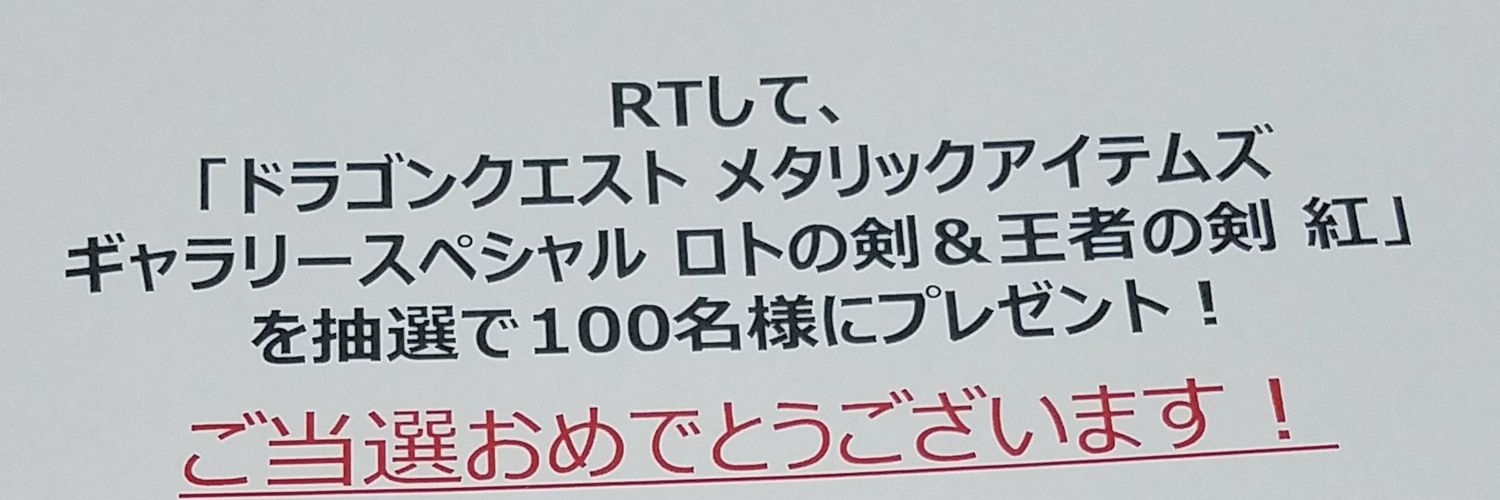 RTして、
「ドラゴンクエスト メタリックアイテムズ
ギャラリースペシャル ロトの剣＆王者の剣 紅」
を抽選で100名様にプレゼント！
ご当選おめでとうございます！